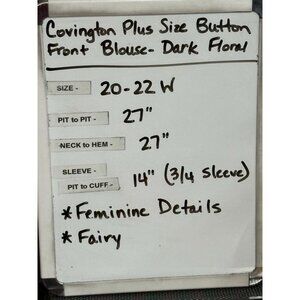 Covington Plus Size Button
Front Blouse- Dark Floral
SIZE - 20-22 W
PIT to PIT - 27"
NECK to HEM - 27"
SLEEVE -
PIT to CUFF - 14" (3/4 Sleeve)
*Feminine Details
*Fairy